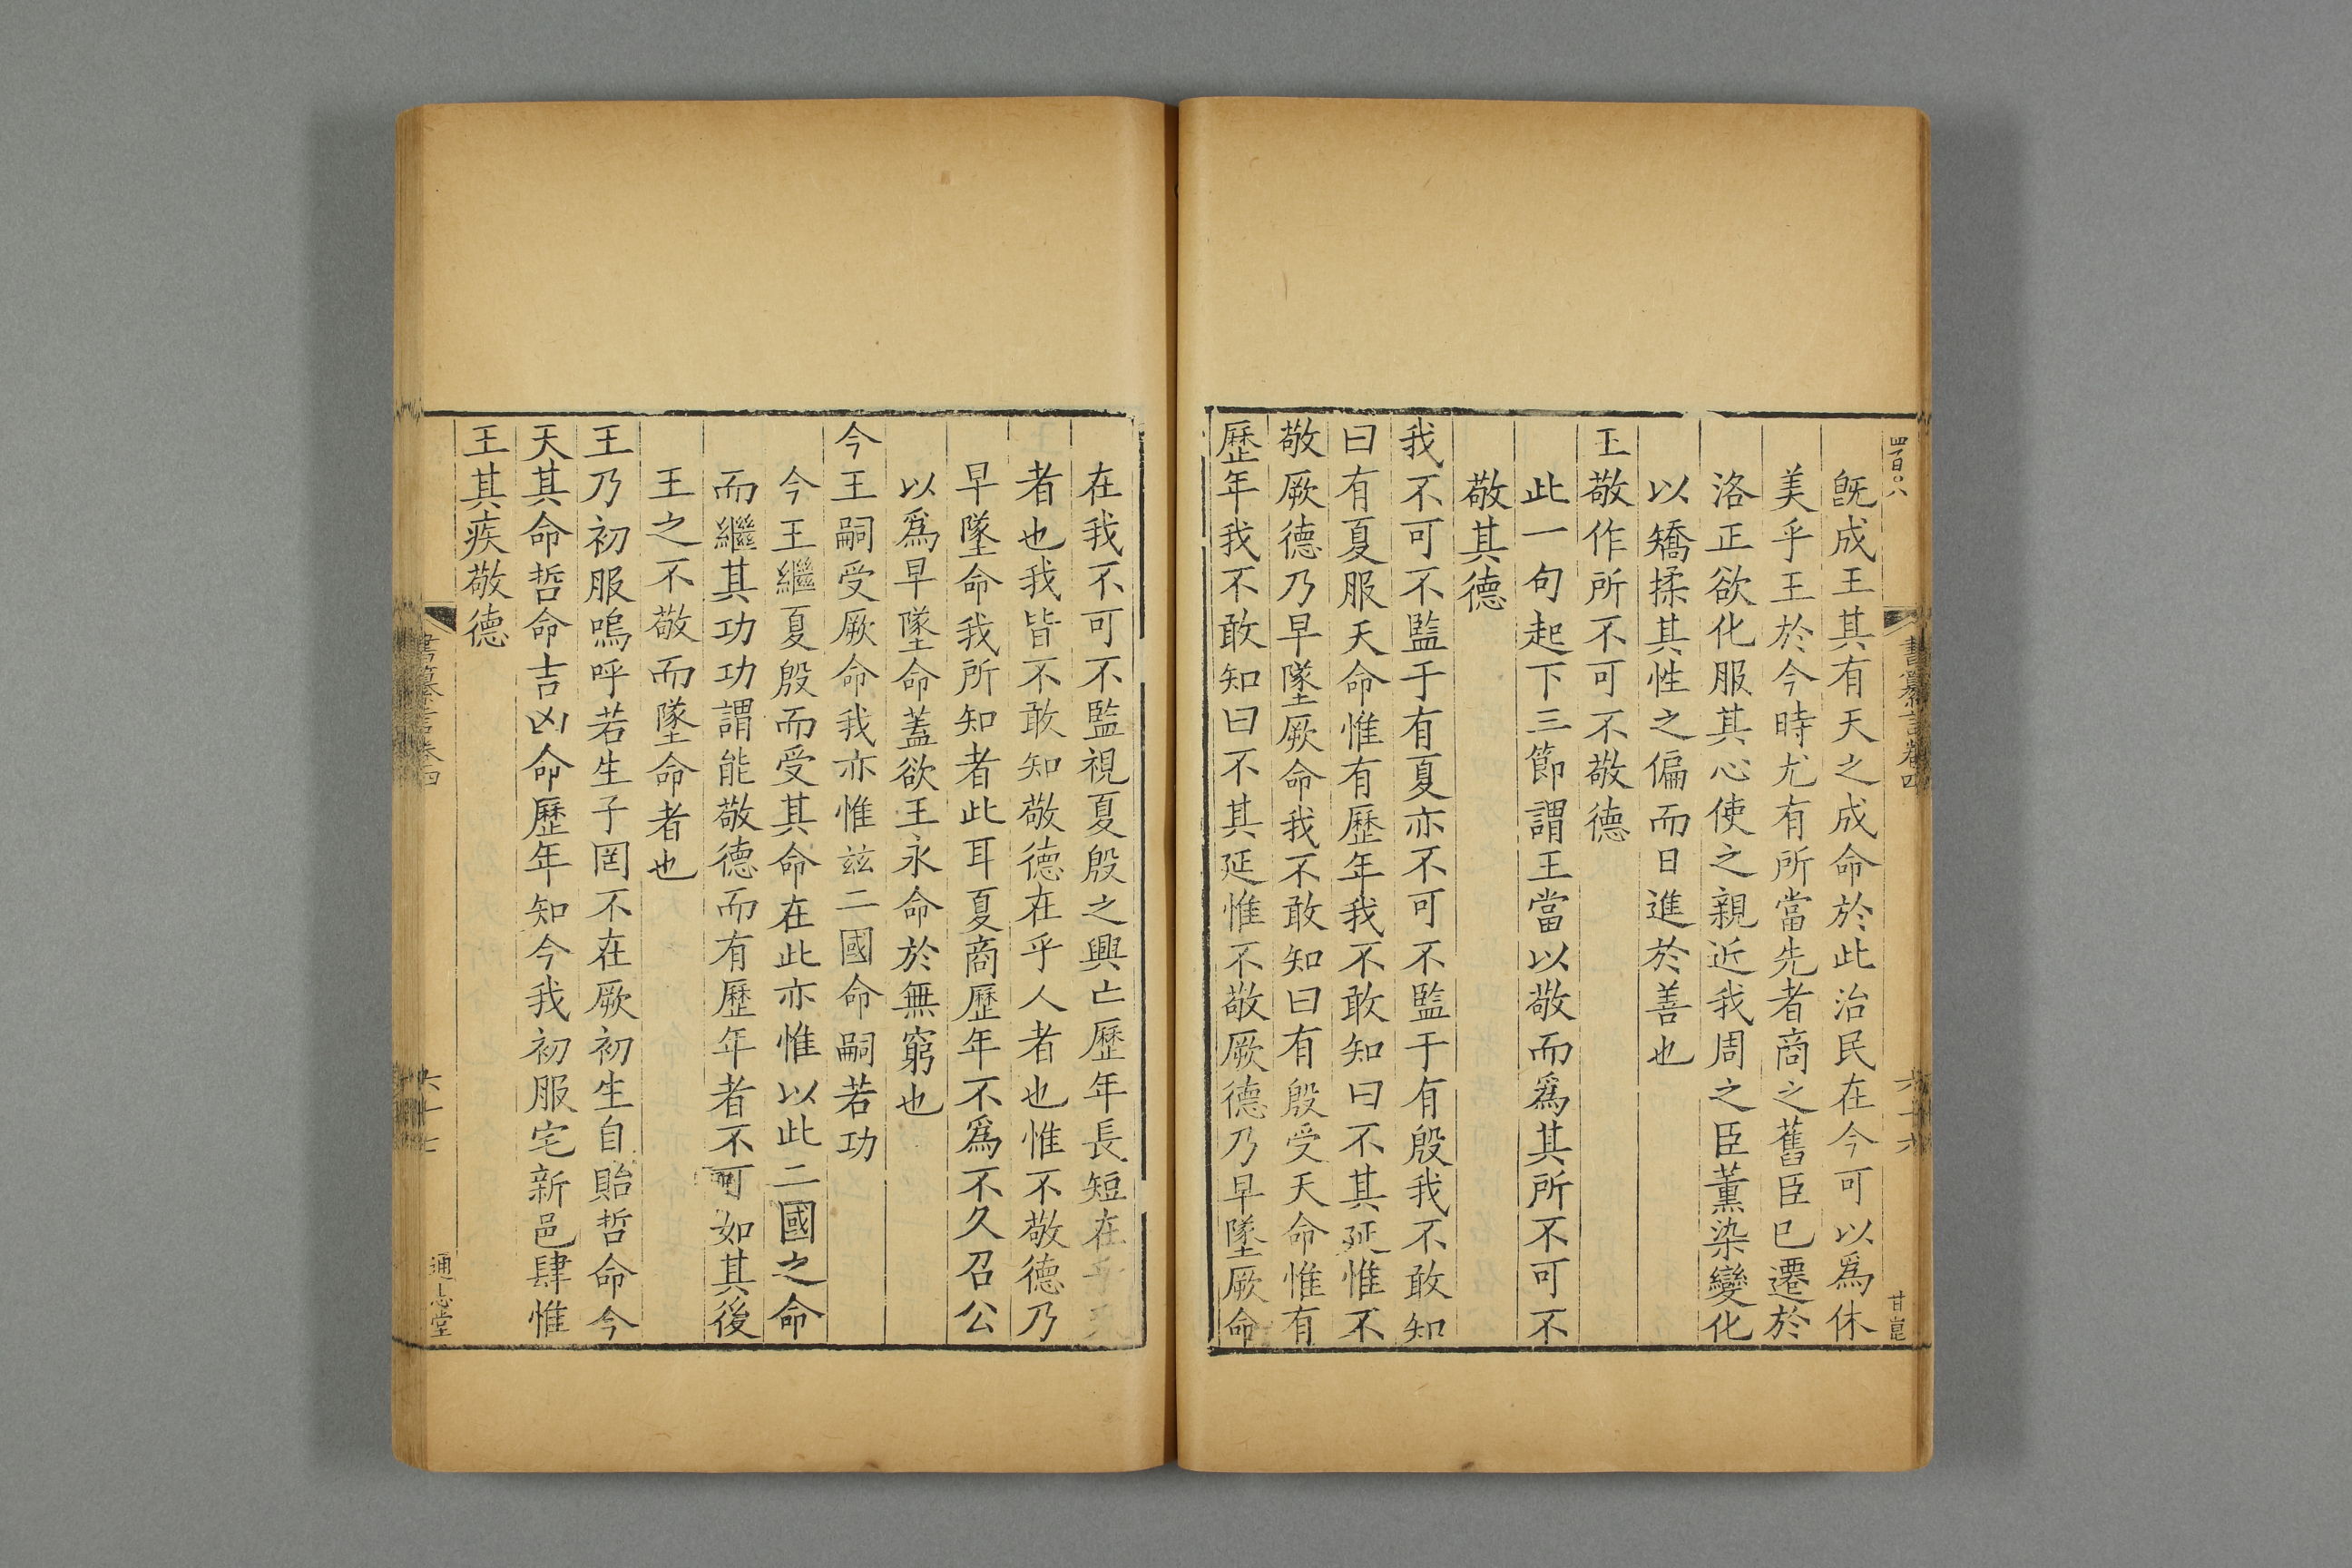 四百〇八
書纂言卷四
六十六
甘崑
既成王其有天之成命於此治民在今可以爲休
美乎王於今時尤有所當先者商之舊臣已遷於
洛正欲化服其心使之親近我周之臣薰染變化
以矯揉其性之偏而日進於善也
王敬作所不可不敬德
此一句起下三節謂王當以敬而爲其所不可不
敬其德
我不可不監于有夏亦不可不監于有殷我不敢知
曰有夏服天命惟有歷年我不敢知曰不其延惟不
敬厥德乃早墜厥命我不敢知曰有殷受天命惟有
歷年我不敢知曰不其延惟不敬厥德乃早墜厥命
在我不可不監視夏殷之興亡歷年長短在乎天
者也我皆不敢知敬德在乎人者也惟不敬德乃
早墜命我所知者此耳夏商歷年不爲不久召公
以爲早墜命蓋欲王永命於無窮也
今王嗣受厥命我亦惟茲二國命嗣若功
今王繼夏殷而受其命在此亦惟以此二國之命
而繼其功功謂能敬德而有歷年者不可如其後
王之不敬而墜命者也
王乃初服嗚呼若生子罔不在厥初生自貽哲命今
天其命哲命吉凶命歷年知今我初服宅新邑肆惟
王其疾敬德
書纂言卷四
六十七
通志堂